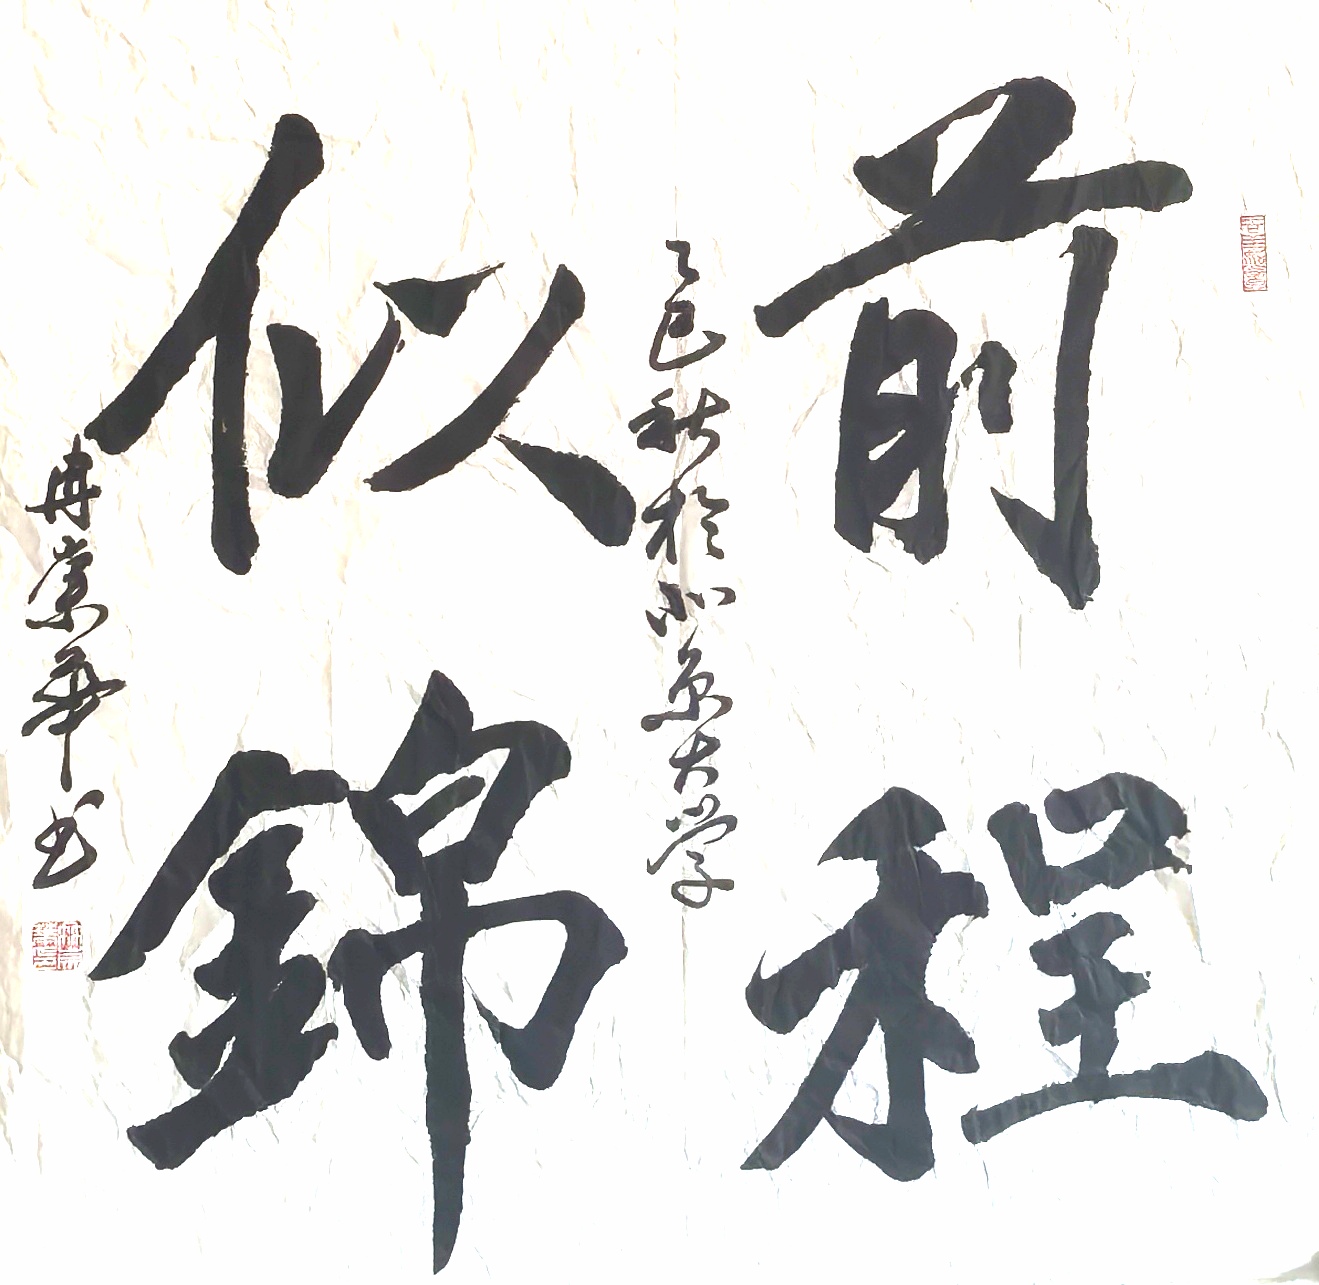 前程
乙巳秋於北京大学
似錦
冉崇華书